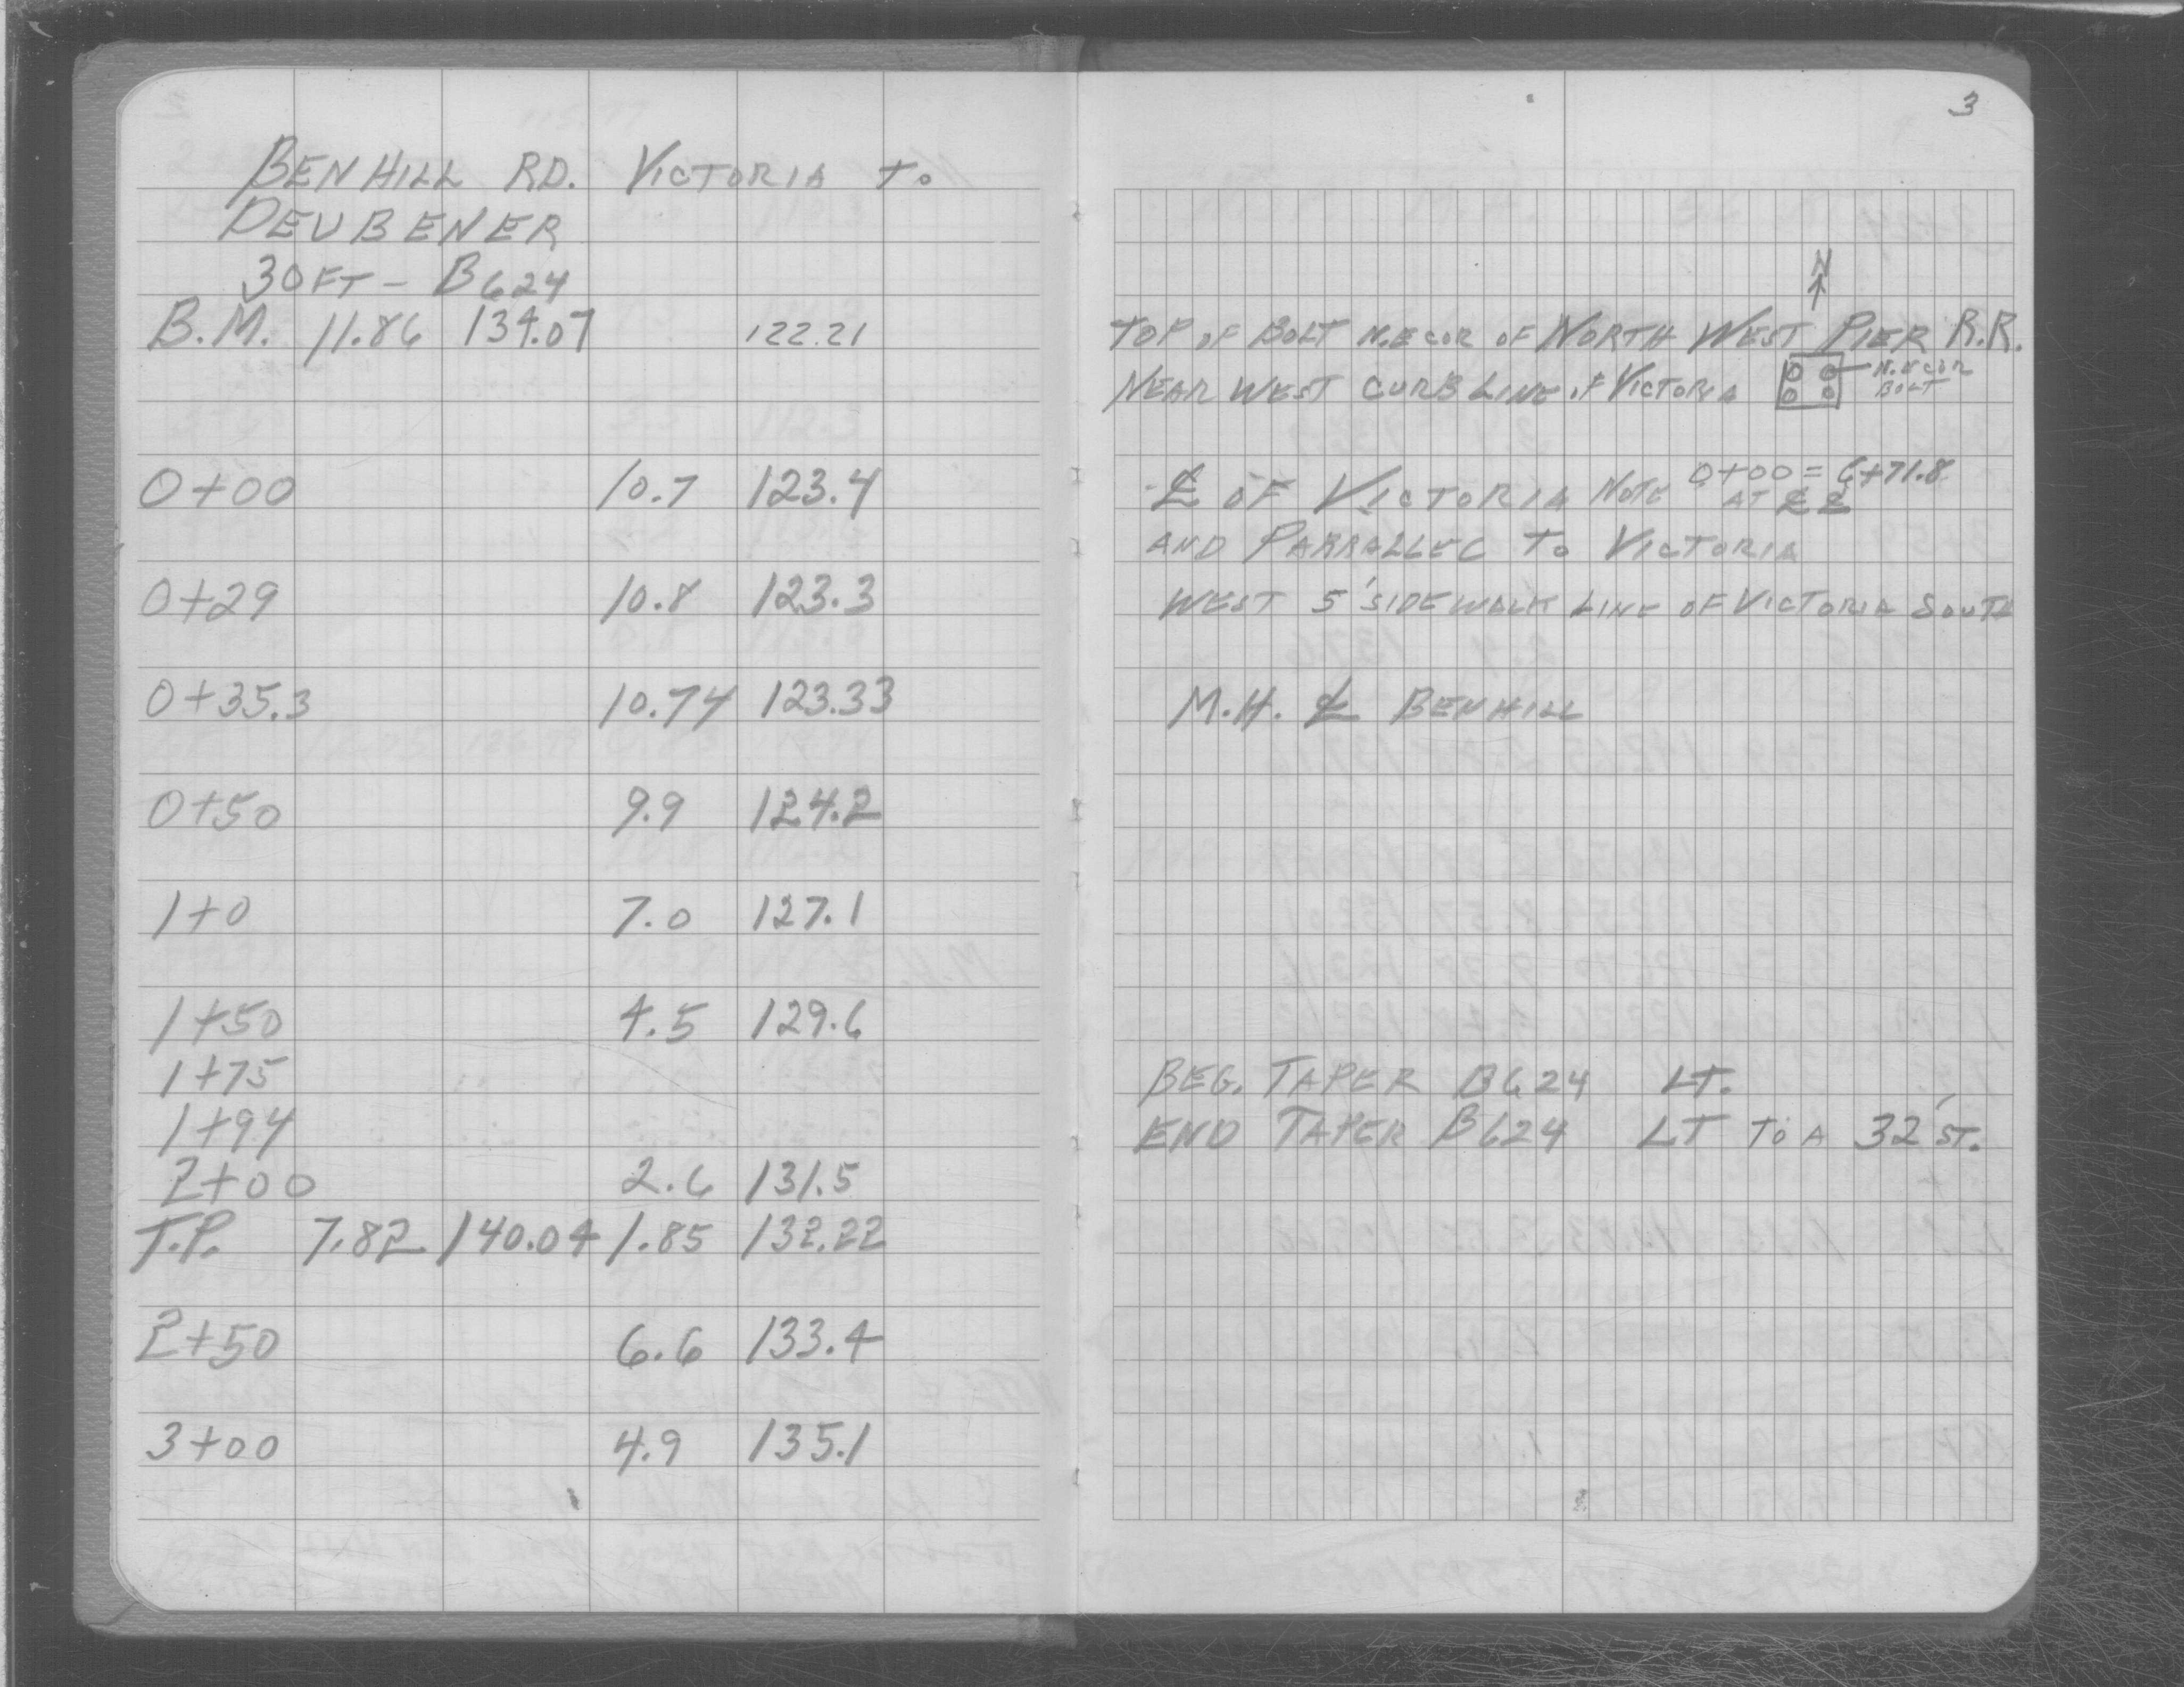 3
BENHILL RD. VICTORIA TO
DEUBENER
30FT - B624
B.M. 11.86 134.07 122.21
0+00 10.7 123.4
0+29 10.8 123.3
0+35.3 10.74 123.33
0+50 9.9 124.2
1+0 7.0 127.1
1+50 4.5 129.6
1+75
1+94
2+00 2.6 131.5
T.P. 7.82 140.04 1.85 132.22
2+50 6.6 133.4
3+00 4.9 135.1
N
TOP OF BOLT N.E COR OF NORTH WEST PIER R.R.
NEAR WEST CURB LINE OF VICTORIA
BOLT
℄ OF VICTORIA NOTE 0+00 = 6+71.8
AT ℄ ℄
AND PARRALLEL TO VICTORIA
WEST 5' SIDEWALK LINE OF VICTORIA SOUTH
M.H. ℄ BENHILL
BEG. TAPER B624 LT.
END TAPER B624 LT TO A 32' ST.